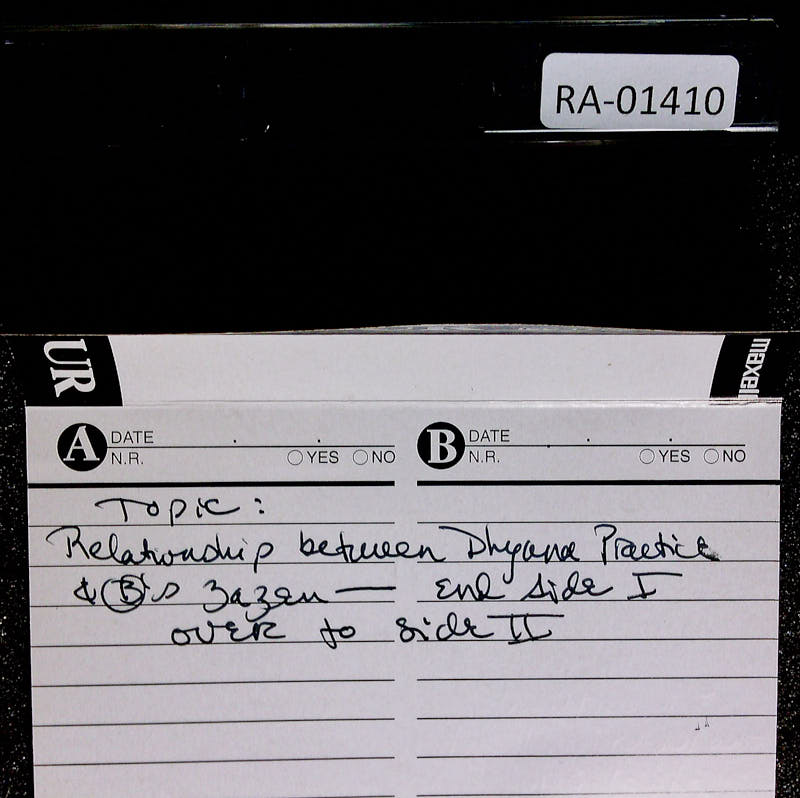 RA-01410
UR
maxell
A DATE . .
N.R. YES NO
B DATE . . .
N.R. YES NO
Topic:
Relationship between Dhyana Practice
& Ⓑ's zazen — end side I
over to side II